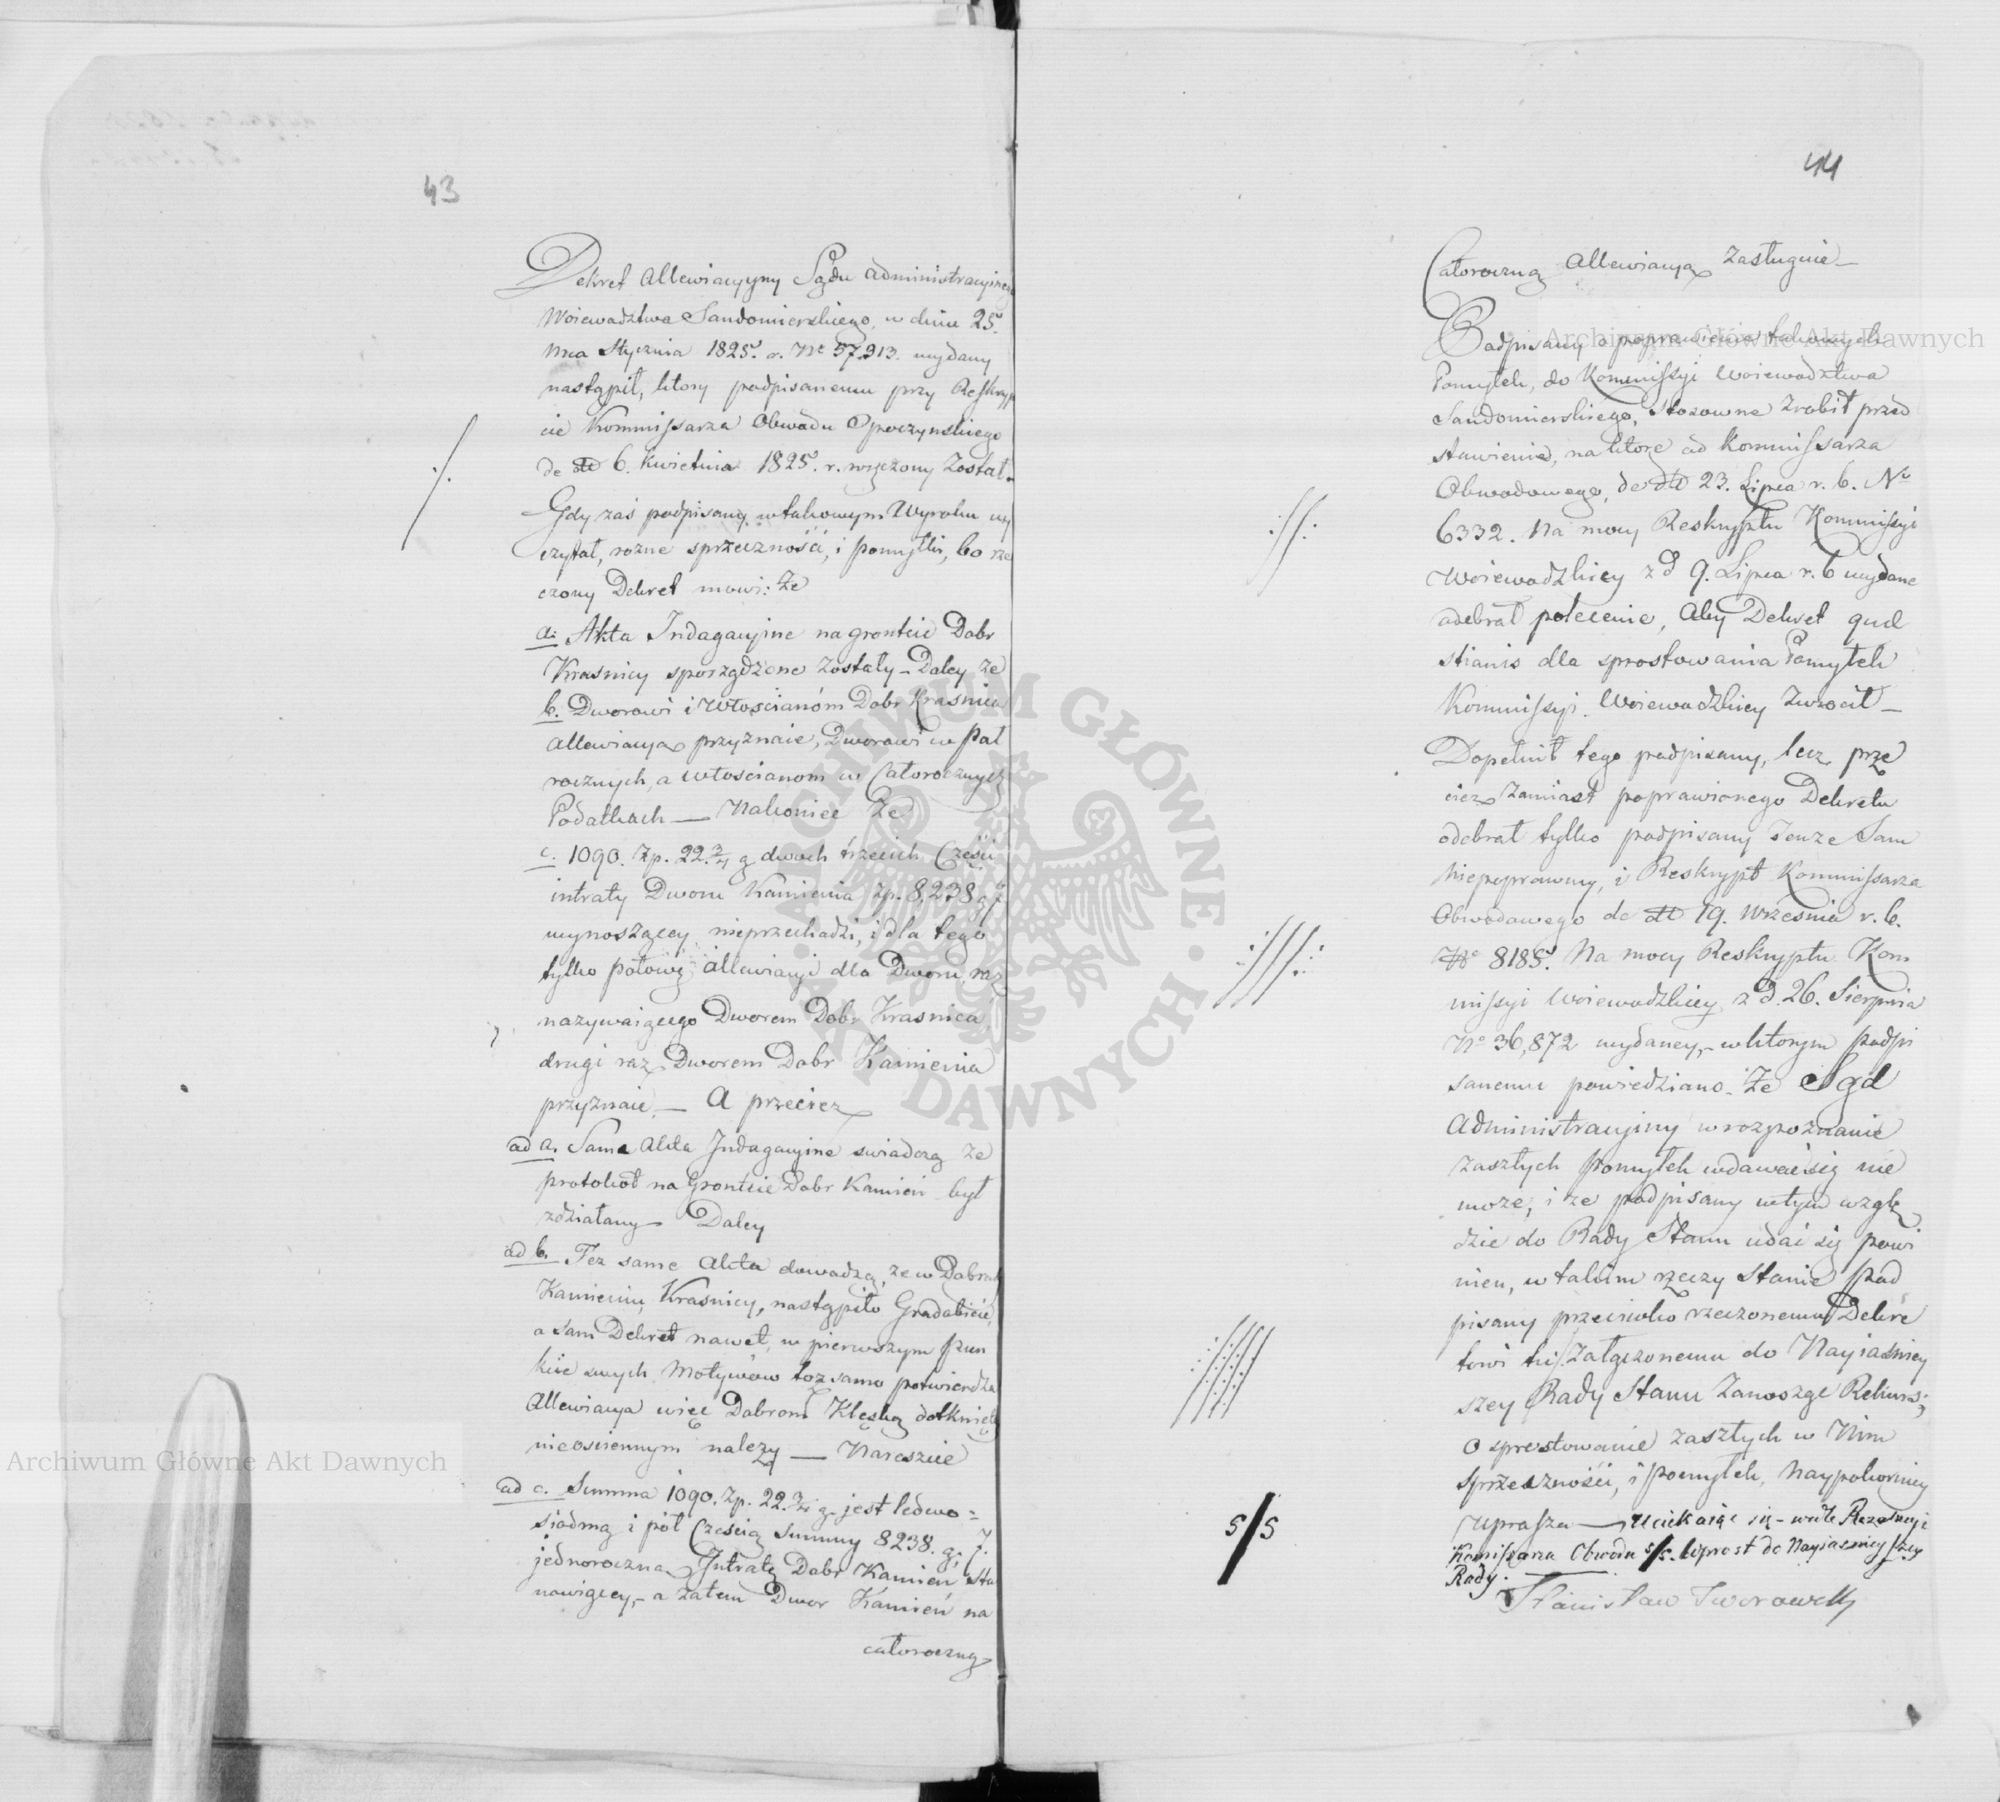 43
Dekret Allewiacyyny Sądu Administracyinego
Woiewodztwa Sandomierskiego, w dniu 25.
Mca Stycznia 1825. r. No 57.913. wydany
nastąpił, ktory podpisanemu przy Reskryp
cie Kommissarza Obwodu Opoczynskiego
de dto 6. Kwietnia 1825. r. wręczony Został.
Gdy zaś podpisany w takowym Wyroku wy
czytał, rozne sprzeczności, i pomyłki, bo rze
czony Dekret mowi: Ze
a: Akta Indagacyine na gronicie Dobr
Krasnicy sporządzone zostały – Daley ze
b. Dworowi i Włoscianóm Dobr Krasnica
Allewiacyą przyznaie, Dworowi w Pół
rocznych, a włoscianom w Całorocznych
Podatkach — Nakoniec Ze
c. 1090. Zp. 22 3/4 g dwoch trzecich Części
intraty Dworu Kamienia Zp. 8,238 g 7
wynoszącey nieprzechodzi, i dla tego
tylko połowę allewiacyi dla Dworu, raz
nazywaiącego Dworem Dobr Krasnica
drugi raz Dworem Dobr Kamienia
przyznaie. — A przeciez
ad a. Same Akta Indagacyine swiadczą ze
protokoł na Gronicie Dobr Kamień był
zdziałany Daley
ad b. Tez same Akta dowodzą, ze w Dobrach
Kamieniu, Krasnicy, nastąpiło Gradobicie,
a sam Dekret nawet, w pierwszym pun
kcie swych Motywów toz samo potwierdza
Allewiacya więc Dobrom Klęską dotknięty
nieosciennym nalezy — Nareszcie
ad c. Summa 1090. Zp. 22 3/4 g. jest ledwo =
siodmą i pół Cześcią Summy 8238. g. 7.
jednoroczną Intratę Dobr Kamień sta
nowiącey, – a zatem Dwor Kamień na
całoroczną
44
Całoroczną Allewiacyą Zasługuie –
Podpisany o poprawienie takowych
Pomyłek, do Kommissyi Woiewodztwa
Sandomierskiego, stosowne Zrobił przed
stawienie, na ktore od Kommissarza
Obwodowego, de dto 23. Lipca r. b. No
6332. Na mocy Reskryptu Kommissyi
Woiewodzkiey z d 9. Lipca r. b wydane
odebrał polecenie, Aby Dekret que
stionis dla sprostowania Pomyłek
Kommissyi Woiewodzkiey Zwrócił –
Dopełnił tego podpisany, lecz prze
ciez Zamiast poprawionego Dekretu
odebrał tylko podpisany Tenze Sam
Niepoprawny, i Reskrypt Kommissarza
Obwodowego de dto 19. Września r. b.
No 8185. Na mocy Reskryptu Kom
missyi Woiewodzkiey z d. 26. Sierpnia
No 36,872 wydaney, – w ktorym podpi
sanemu powiedziano. Ze Sąd
Administracyiny w rozpoznanie
zaszłych pomyłek wdawać się nie
moze, i ze podpisany w tym wzglę
dzie do Rady Stanu udać się powi
nien, w takim rzeczy stanie pod
pisany przeciwko rzeczonemu Dekre
towi tu Załączonemu do Nayiaśniey
szey Rady Stanu Zanoszę Rekurs;
o sprostowanie zaszłych w Nim
Sprzeczności, i pomyłek, Naypokorniey
Uprasza — Uciekaiąc się – wedle Rezolucyi
Komissarza Obwodu s/s. wprost do Nayiasnieyszey
Rady. —
s/s
Stanisław Tworowski
Archiwum Główne Akt Dawnych
Archiwum Główne Akt Dawnych
ARCHIWUM GŁÓWNE AKT DAWNYCH